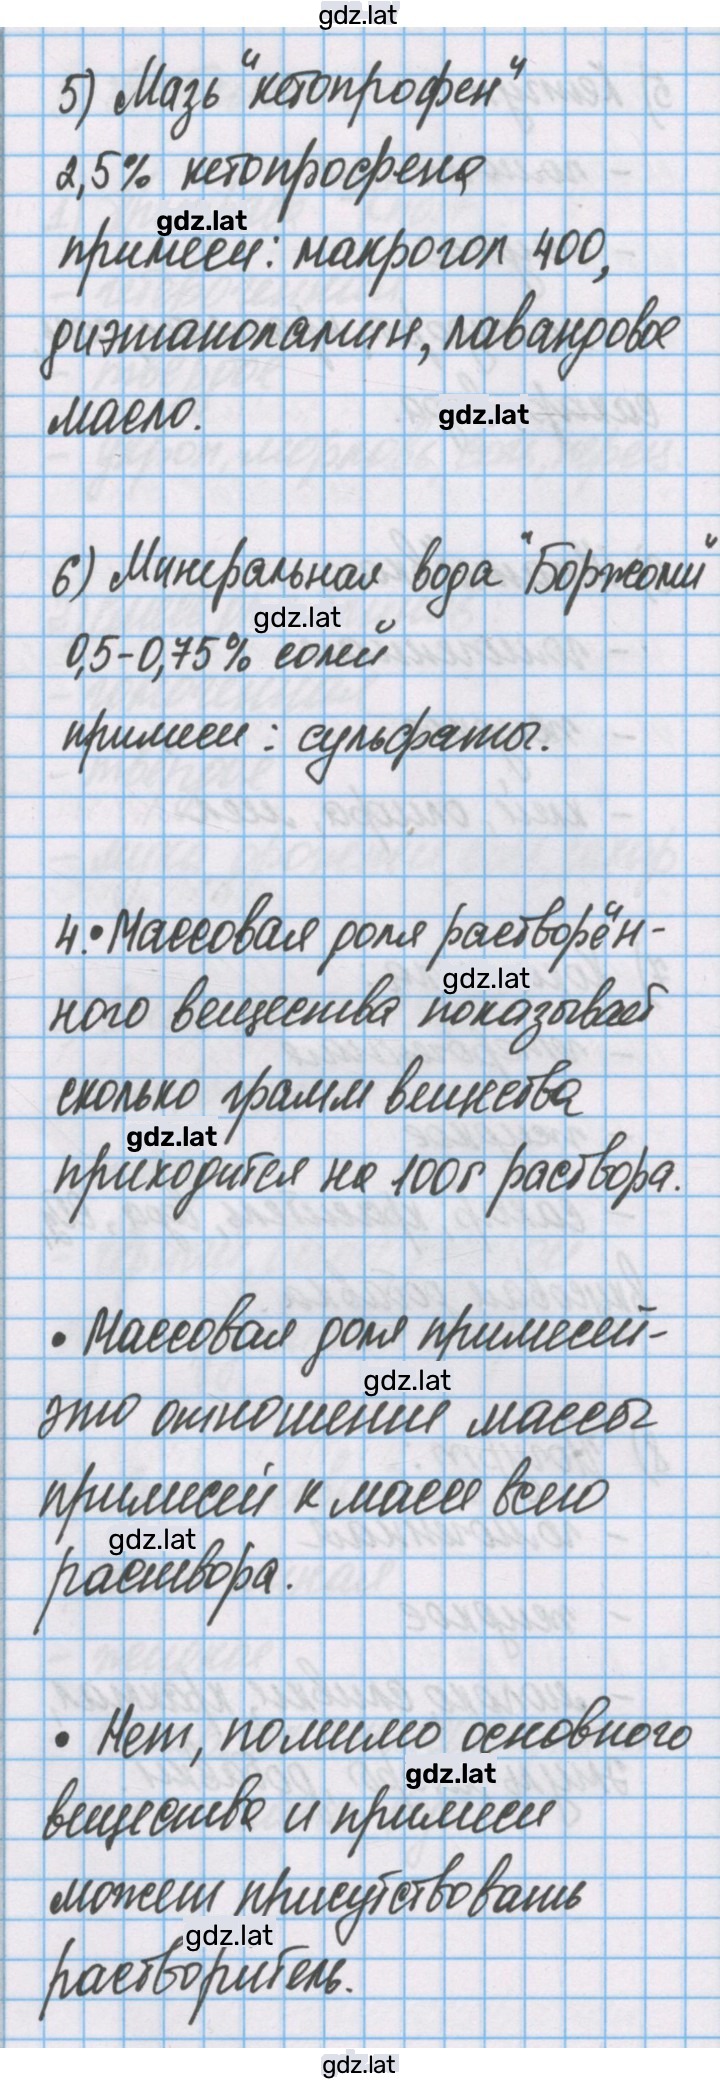 gdz.lat
5) Мазь "кетопрофен"
2,5% кетопрофена
gdz.lat
примеси: макрогол 400,
диэтаноламин, лавандовое
gdz.lat
масло.
6) Минеральная вода "Боржоми"
gdz.lat
0,5-0,75% солей
примеси: сульфаты.
4.•Массовая доля растворён-
gdz.lat
ного вещества показывает
сколько грамм вещества
gdz.lat
приходится на 100г раствора.
• Массовая доля примесей-
gdz.lat
это отношение массы
примесей к массе всего
gdz.lat
раствора.
• Нет, помимо основного
gdz.lat
вещества и примеси
может присутствовать
gdz.lat
растворитель.
gdz.lat